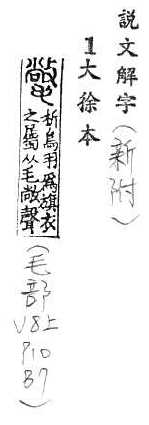 説文解字(新附)
1大徐本
氅 析鳥羽爲旗衣
之屬从毛敞聲
(毛部
V8上
P10
B7)